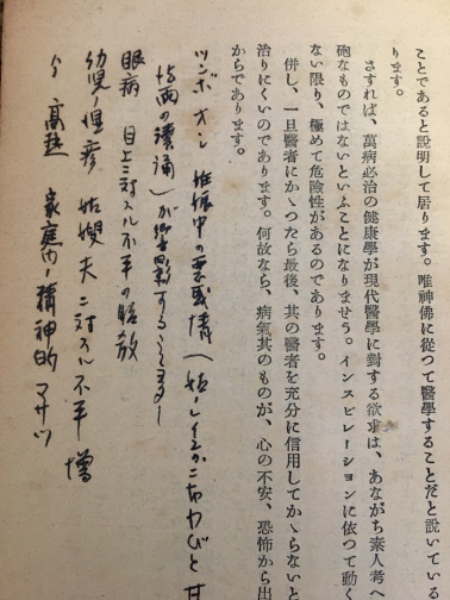 ことであると說明して居ります。唯神佛に從つて醫學することだと說いている
ります。
さすれば、萬病必治の健康學が現代醫學に對する欲求は、あながち素人考へ
砲なものではないといふことになりませう。インスピレーションに依つて動く
ない限り、極めて危險性があるのであります。
併し、一旦醫者にかゝつたら最後、其の醫者を充分に信用してかゝらないと
治りにくいのであります。何故なら、病氣其のものが、心の不安、恐怖から出
からであります。
ツンボ オシ 姙娠中の
が影響することアリ
眼病 目上ニ対スル不平の
幼児ノ 姑 夫ニ対スル不平 憎
〃 高熱 家庭内ノ精神的マサツ